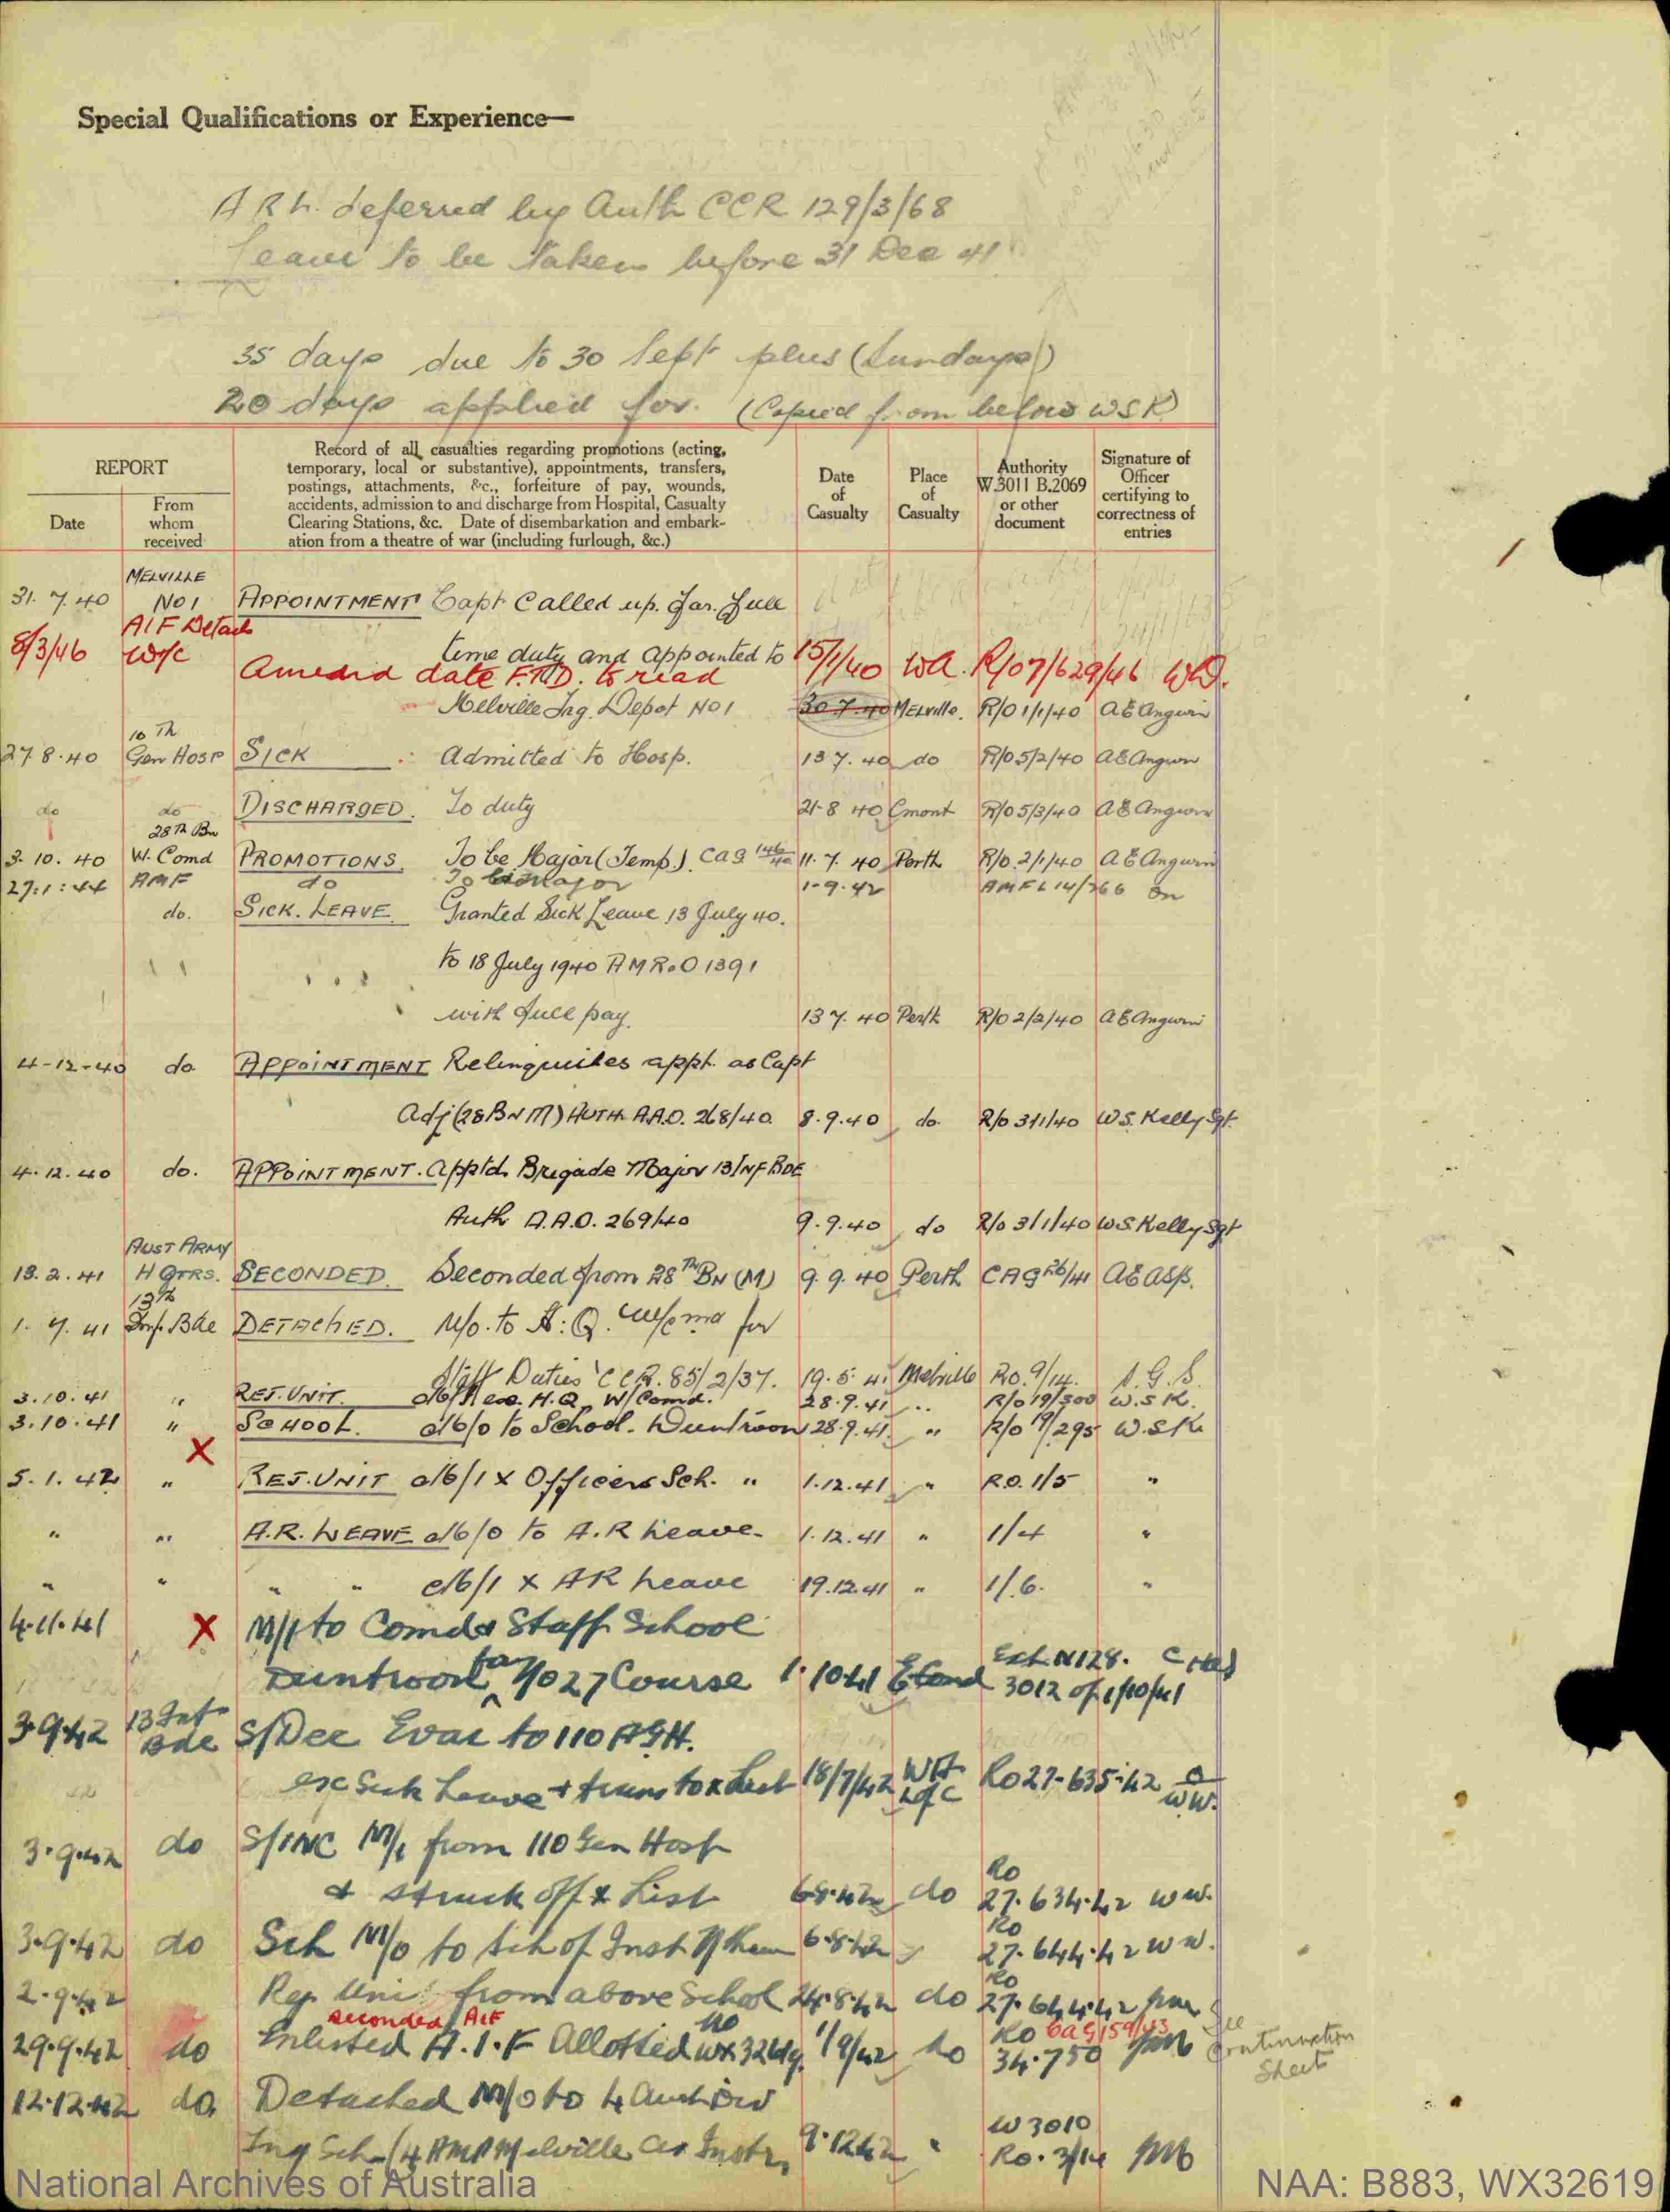 Special Qualifications or Experience—
A R L. deferred by Auth CCR 129/3/68
Leave to be taken before 31 Dec 41
35 days due to 30 Sept plus (Sundays)
20 days applied for. (Copied from below WSK)
REPORT
Date
From whom received
Record of all casualties regarding promotions (acting, temporary, local or substantive), appointments, transfers, postings, attachments, &c., forfeiture of pay, wounds, accidents, admission to and discharge from Hospital, Casualty Clearing Stations, &c. Date of disembarkation and embarkation from a theatre of war (including furlough, &c.)
Date of Casualty
Place of Casualty
Authority W.3011 B.2069 or other document
Signature of Officer certifying to correctness of entries
MELVILLE
31. 7. 40 NO 1 APPOINTMENT Capt Called up. for. full
AIF Details
time duty and appointed to
8/3/46 W/C Amend date F.T.D. to read 15/1/40 WA. R/O7/629/46
Melville Tng. Depot NO 1 30.7.40 Melville. R/O 1/1/40 A E Angwin
10 Th
27 8.40 Gen Hosp SICK Admitted to Hosp. 13 7. 40 do R/O 5/2/40 A E Angwin
do do DISCHARGED. To duty 21-8 40 Cmont R/O 5/3/40 A E Angwin
28 Th Bn
3. 10. 40 W. Comd PROMOTIONS. To be Major (Temp). CAG 146/40 11. 7. 40 Perth R/O. 2/1/40 A E Angwin
27:1:44 AMF do To be Major 1-9.42 AMF L 14/366
do. SICK. LEAVE. Granted Sick Leave 13 July 40.
to 18 July 1940 A M R.O 1391
with full pay. 13 7. 40 Perth R/O 2/2/40 A E Angwin
4-12-40 do. APPOINTMENT Relinquishes appt. as Capt
Adj (28 BN M) AUTH A.A.O. 268/40. 8.9.40 do. R/O 3/1/40 W.S. Kelly Sgt.
4.12.40 do. APPOINTMENT. Apptd. Brigade Major 13 INF BDE
Auth A.A.O. 269/40 9.9.40 do R/O 3/1/40 W.S Kelly Sgt
AUST ARMY
13. 2. 41 H QTRS. SECONDED. Seconded from 28 Th BN (M) 9. 9. 40 Perth CAG 26/41
13th
1. 7. 41 Inf. Bde DETACHED. M/O. to H.Q. W/Comd for
Staff Duties CCR. 85/2/37. 19. 5. 41 Melville RO. 9/14.
3.10.41 " REJ. UNIT. H.Q. W/Comd. 28.9.41 " R/O 19/300 W.S K.
3.10.41 " SCHOOL. M/O to School. Duntroon 28.9.41 " R/O 19/295 W.S K
X
5.1.42 " REJ. UNIT M/I X Officers Sch. " 1.12.41 " R.O. 1/5 "
" " A.R. LEAVE M/O to A.R Leave. 1.12.41 " 1/4 "
" " " " M/I X AR Leave 19.12.41 " 1/6. "
4.11.41 X M/I to Comd & Staff School
Duntroon for No 27 Course 1.10.41 3012 of 1/10/41
3.9.42 13 Inf Bde S/Dec Evac to 110 AGH.
ex Sick Leave & trans to x List 18/7/42 WA LofC Ro 27-635-42 W.W.
3.9.42 do S/INC M/I from 110 Gen Hosp
& struck off x List 6.8.42 do Ro 27.634.42 W W.
3.9.42 do Sch M/O to Sch of Inst Northam 6.8.42 Ro 27.644.42 W W.
2.9.42 Rej. Unit from above School 24.8.42 do Ro 27.644.42
seconded AIF No
29.9.42 do Enlisted A.I.F. Allotted WX32619. 1/9/42 do Ro 34.750 CAG 159/43 See Continuation Sheet
12.12.42 do. Detached M/O to 4 Aust Div
Tng Sch (4 AMP) Melville as Instr. 9.12.42 " W3010 Ro. 3/14
National Archives of Australia
NAA: B883, WX32619